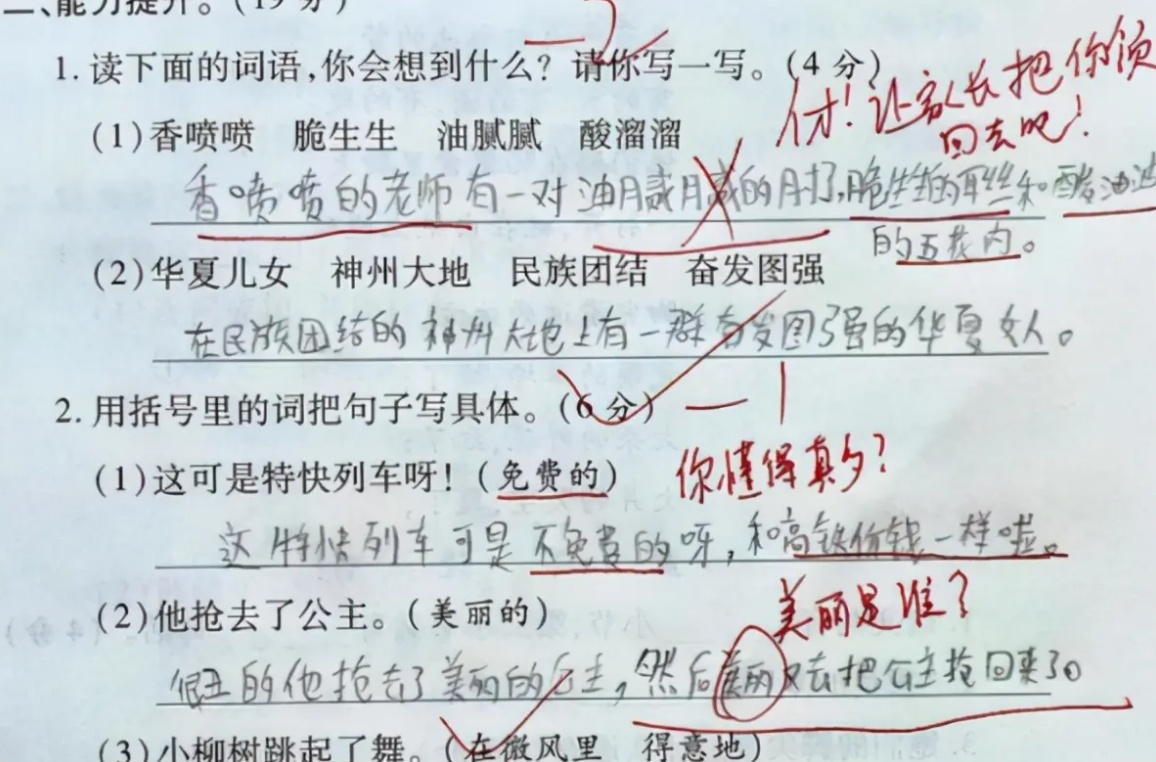 二、能力提升。(19分)
1. 读下面的词语,你会想到什么?请你写一写。(4分)
人才!让家长把你领
回去吧!
(1)香喷喷 脆生生 油腻腻 酸溜溜
香喷喷的老师有一对油腻腻的肘子,脆生生的耳丝和酸溜溜
的五花肉。
(2)华夏儿女 神州大地 民族团结 奋发图强
在民族团结的神州大地上有一群奋发图强的华夏女人。
2. 用括号里的词把句子写具体。(6分) -1
(1)这可是特快列车呀!(免费的) 你懂得真多?
这特快列车可是不免费的呀,和高铁价钱一样啦。
(2)他抢去了公主。(美丽的) 美丽是谁?
很丑的他抢去了美丽的公主,然后美丽又去把公主抢回来了。
(3)小柳树跳起了舞。(在微风里 得意地)